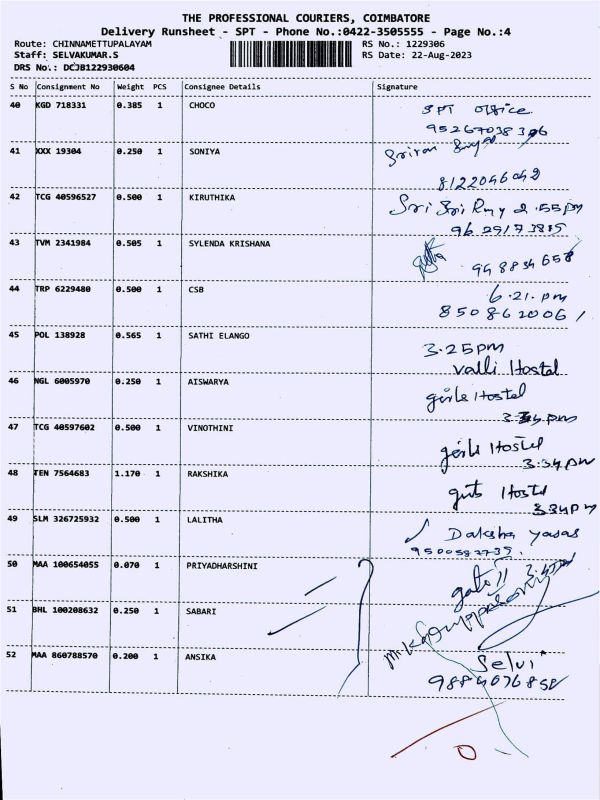 THE PROFESSIONAL COURIERS, COIMBATORE
Delivery Runsheet - SPT - Phone No.:0422-3505555 - Page No.:4
Route: CHINNAMETTUPALAYAM
RS No.: 1229306
Staff: SELVAKUMAR.S
RS Date: 22-Aug-2023
DRS No.: DCJB122930604
S No Consignment No Weight PCS Consignee Details Signature
40 KGD 718331 0.385 1 CHOCO SPT Office
41 XXX 19304 0.250 1 SONIYA
8122046042
42 TCG 40596527 0.500 1 KIRUTHIKA Sri Sri 2.55pm
43 TVM 2341984 0.505 1 SYLENDA KRISHANA
44 TRP 6229480 0.500 1 CSB 6.21.pm
8508620061
45 POL 138928 0.565 1 SATHI ELANGO 3.25pm
valli Hostel
46 NGL 6005970 0.250 1 AISWARYA girls Hostel
47 TCG 40597602 0.500 1 VINOTHINI girls Hostel
3.34pm
48 TEN 7564683 1.170 1 RAKSHIKA Hostel
3.34pm
49 SLM 326725932 0.500 1 LALITHA Daksha yasas
50 MAA 100654055 0.070 1 PRIYADHARSHINI
51 BHL 100208632 0.250 1 SABARI
52 MAA 860788570 0.200 1 ANSIKA Selvi